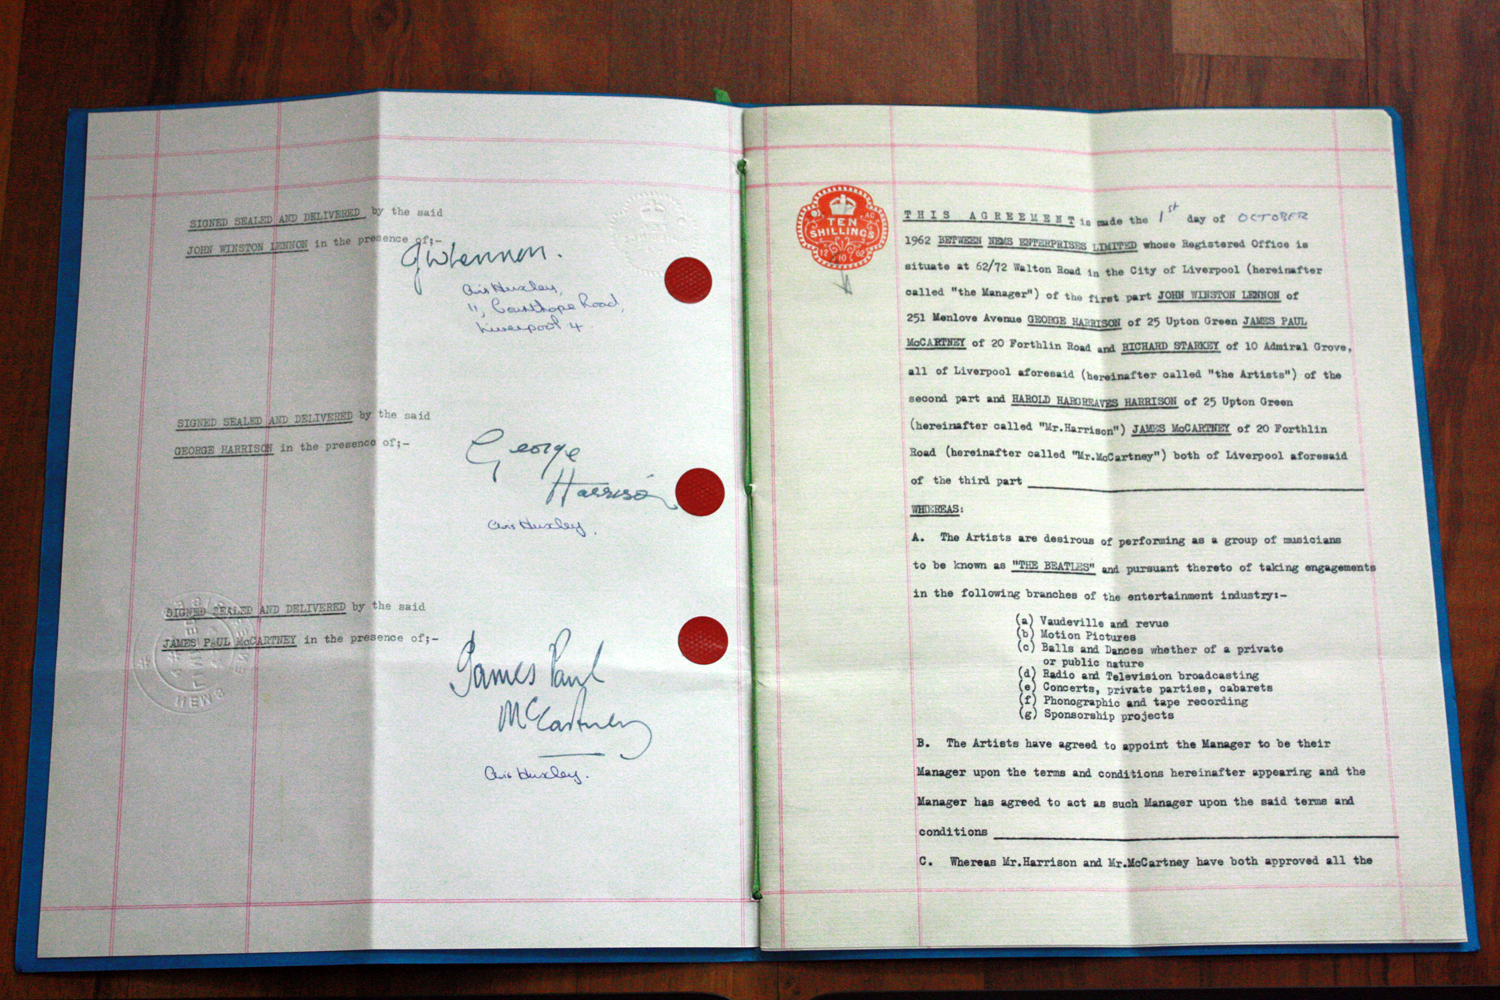 SIGNED SEALED AND DELIVERED by the said
JOHN WINSTON LENNON in the presence of:-
JWLennon.
11,
Road,
Liverpool 4.
SIGNED SEALED AND DELIVERED by the said
GEORGE HARRISON in the presence of:-
George
Harrison
Huxley.
SIGNED SEALED AND DELIVERED by the said
JAMES PAUL McCARTNEY in the presence of:-
James Paul
McCartney
Huxley.
TEN
SHILLINGS
THIS AGREEMENT is made the 1st day of OCTOBER
1962 BETWEEN NEMS ENTERPRISES LIMITED whose Registered Office is
situate at 62/72 Walton Road in the City of Liverpool (hereinafter
called "the Manager") of the first part JOHN WINSTON LENNON of
251 Menlove Avenue GEORGE HARRISON of 25 Upton Green JAMES PAUL
McCARTNEY of 20 Forthlin Road and RICHARD STARKEY of 10 Admiral Grove,
all of Liverpool aforesaid (hereinafter called "the Artists") of the
second part and HAROLD HARGREAVES HARRISON of 25 Upton Green
(hereinafter called "Mr.Harrison") JAMES McCARTNEY of 20 Forthlin
Road (hereinafter called "Mr.McCartney") both of Liverpool aforesaid
of the third part
WHEREAS:
A. The Artists are desirous of performing as a group of musicians
to be known as "THE BEATLES" and pursuant thereto of taking engagements
in the following branches of the entertainment industry:-
(a) Vaudeville and revue
(b) Motion Pictures
(c) Balls and Dances whether of a private
or public nature
(d) Radio and Television broadcasting
(e) Concerts, private parties, cabarets
(f) Phonographic and tape recording
(g) Sponsorship projects
B. The Artists have agreed to appoint the Manager to be their
Manager upon the terms and conditions hereinafter appearing and the
Manager has agreed to act as such Manager upon the said terms and
conditions
C. Whereas Mr.Harrison and Mr.McCartney have both approved all the